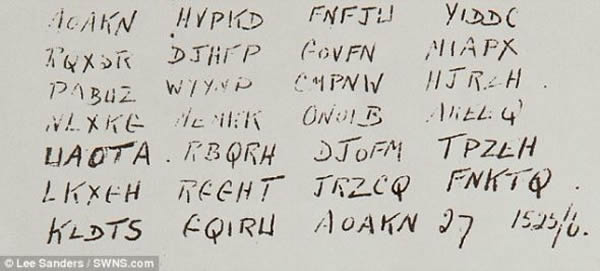 AOAKN HVPKD FNFJW YIDDC
RQXSR DJHFP GOVFN MIAPX
PABUZ WYYNP CMPNW HJRZH .
NLXKG MEMKK ONOIB AKEEQ
WAOTA . RBQRH DJOFM TPZEH
LKXGH RGGHT JRZCQ FNKTQ .
KLDTS GQIRW AOAKN 27 1525/6.
© Lee Sanders / SWNS.com